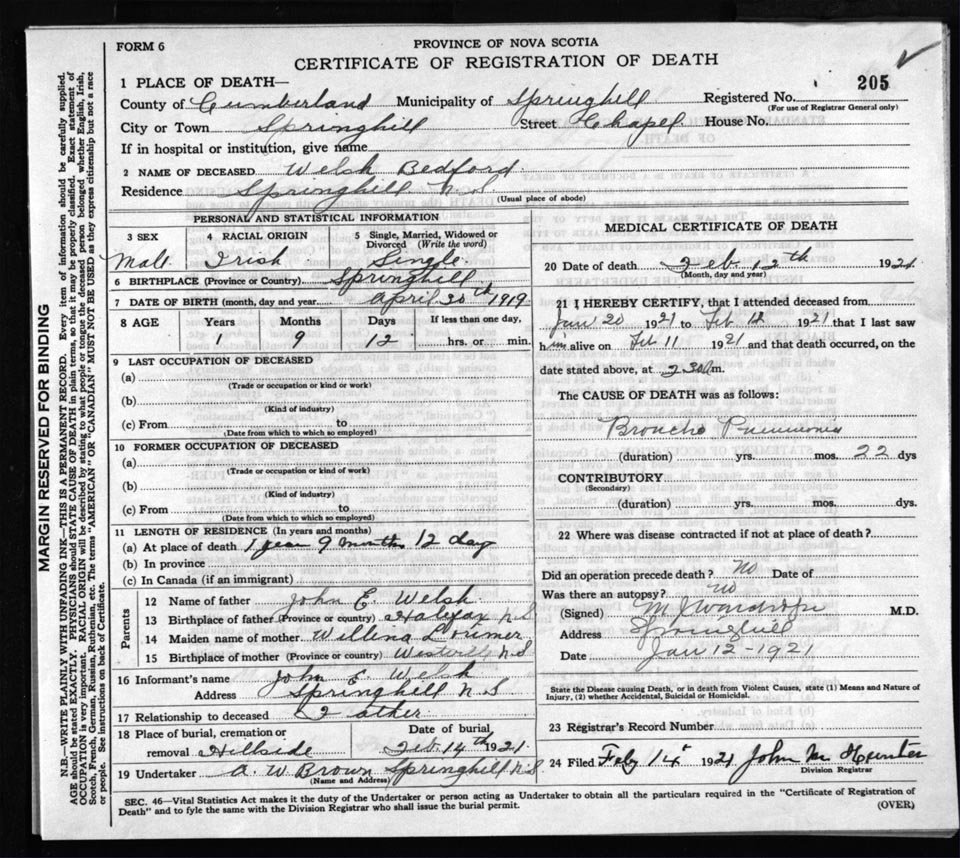 FORM 6
PROVINCE OF NOVA SCOTIA
CERTIFICATE OF REGISTRATION OF DEATH
205
1 PLACE OF DEATH—
County of Cumberland Municipality of Springhill Registered No.
(For use of Registrar General only)
City or Town Springhill Street Chapel House No.
If in hospital or institution, give name
2 NAME OF DECEASED Welsh Bedford
Residence Springhill N.S.
(Usual place of abode)
PERSONAL AND STATISTICAL INFORMATION
3 SEX 4 RACIAL ORIGIN 5 Single, Married, Widowed or Divorced (Write the word)
Male Irish Single
6 BIRTHPLACE (Province or Country) Springhill
7 DATE OF BIRTH (month, day and year) April 30th 1919
8 AGE Years Months Days If less than one day,
1 9 12 hrs. or min.
9 LAST OCCUPATION OF DECEASED
(a)
(Trade or occupation or kind or work)
(b)
(Kind of industry)
(c) From to
(Date from which to which so employed)
10 FORMER OCCUPATION OF DECEASED
(a)
(Trade or occupation or kind of work)
(b)
(Kind of industry)
(c) From to
(Date from which to which so employed)
11 LENGTH OF RESIDENCE (In years and months)
(a) At place of death 1 year 9 months 12 day
(b) In province
(c) In Canada (if an immigrant)
Parents
12 Name of father John E. Welsh
13 Birthplace of father (Province or country) Halifax N S
14 Maiden name of mother Willena Lorimer
15 Birthplace of mother (Province or country) Westville N S
16 Informant's name John E. Welsh
Address Springhill N. S
17 Relationship to deceased Father
18 Place of burial, cremation or removal Hillside
Date of burial
Feb. 14th 1921
19 Undertaker A. W Brown Springhill N.S.
(Name and Address)
MEDICAL CERTIFICATE OF DEATH
20 Date of death Feb. 12th 1921
(Month, day and year)
21 I HEREBY CERTIFY, that I attended deceased from
Jan 20 1921 to Feb 12 1921 that I last saw
him alive on Feb 11 1921 and that death occurred, on the
date stated above, at m.
The CAUSE OF DEATH was as follows:
Broncho Pneumonia
(duration) yrs. mos. 22 dys
CONTRIBUTORY
(Secondary)
(duration) yrs. mos. dys.
22 Where was disease contracted if not at place of death?
Did an operation precede death? No Date of
Was there an autopsy? no
(Signed) M.D.
Address Springhill
Date Jan 12-1921
State the Disease causing Death, or in death from Violent Causes, state (1) Means and Nature of
Injury, (2) whether Accidental, Suicidal or Homicidal.
23 Registrar's Record Number
24 Filed Feb 14 1921 John M Hunter
Division Registrar
SEC. 46—Vital Statistics Act makes it the duty of the Undertaker or person acting as Undertaker to obtain all the particulars required in the "Certificate of Registration of
Death" and to fyle the same with the Division Registrar who shall issue the burial permit.
(OVER)
MARGIN RESERVED FOR BINDING
N.B.—WRITE PLAINLY WITH UNFADING INK—THIS IS A PERMANENT RECORD. Every item of information should be carefully supplied.
AGE should be stated EXACTLY. PHYSICIANS should STATE CAUSE OF DEATH in plain terms, so that it may be properly classified. Exact statement of
OCCUPATION is very important. RACIAL ORIGIN will be described by stating to what people or tongue the deceased person belonged whether English, Irish,
Scotch, French, German, Russian, Ruthenian, etc. The terms "AMERICAN" OR "CANADIAN" MUST NOT BE USED as they express citizenship but not a race
or people. See instructions on back of Certificate.